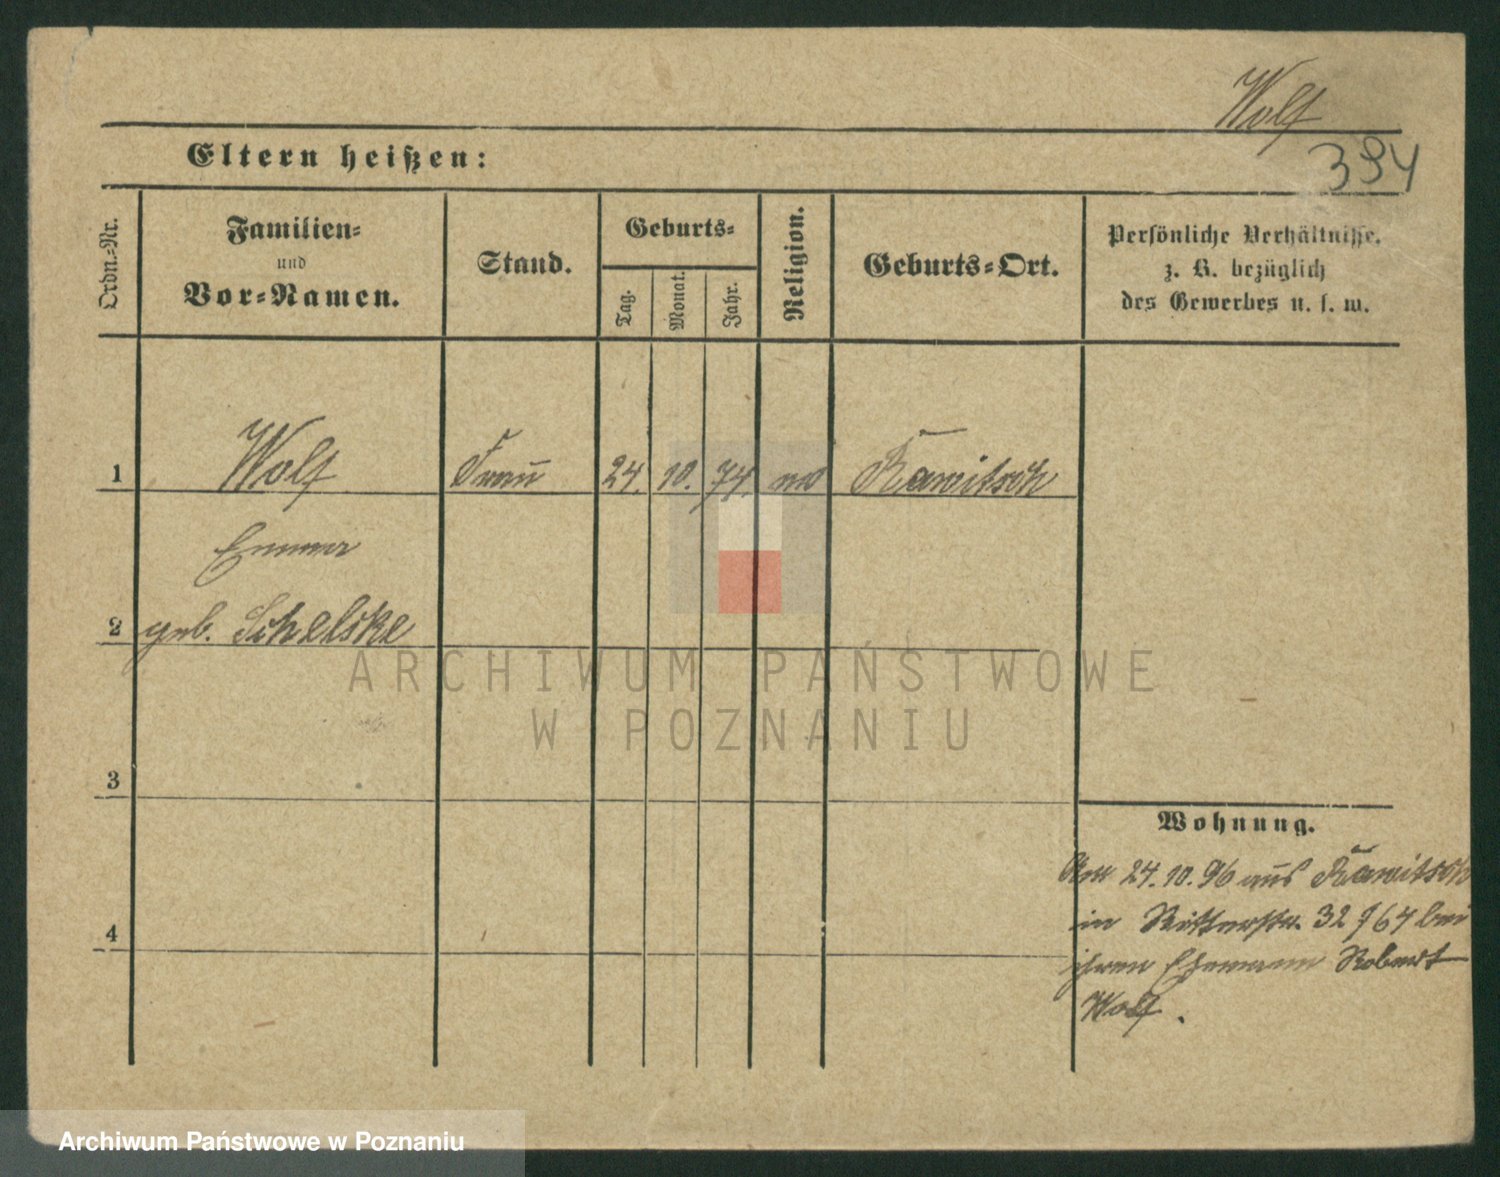 Wolf
394
Eltern heißen:
Ordn.-Nr.
Familien-
und
Vor-Namen.
Stand.
Geburts-
Tag.
Monat.
Jahr.
Religion.
Geburts-Ort.
Persönliche Verhältnisse.
z. B. bezüglich
des Gewerbes u. s. w.
1 Wolf Frau 24. 10. 74. Rawitsch
Emma
2 geb. Schelske
3
4
Wohnung.
Am 24.10.96 aus Rawitsch
in Ritterstr. 32 bei
ihren Ehemann Robert
Wolf.
ARCHIWUM PAŃSTWOWE
W POZNANIU
Archiwum Państwowe w Poznaniu